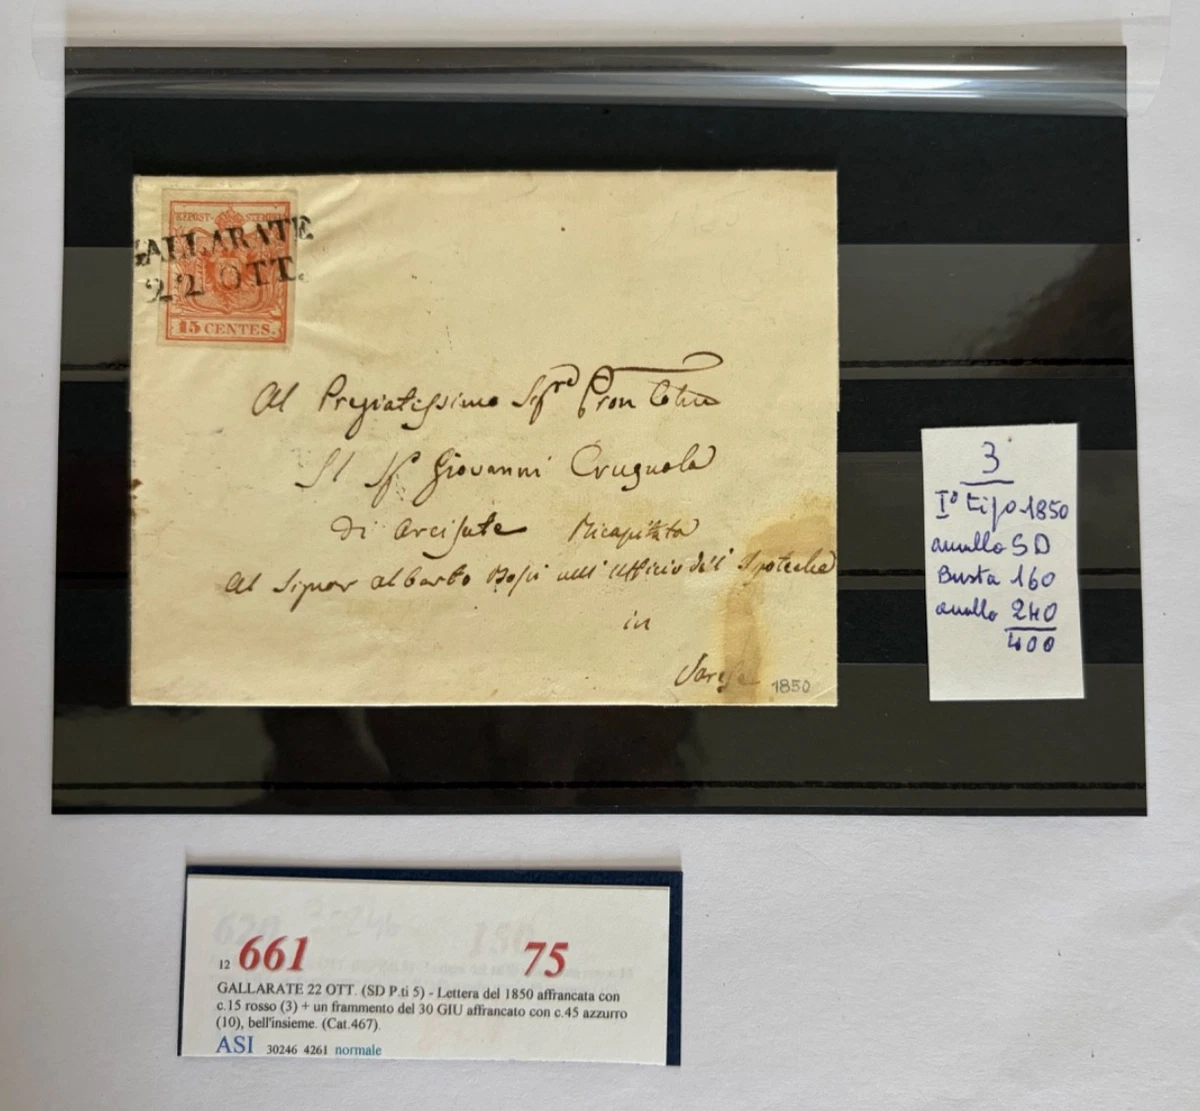 KKPOST-STEMPEL
GALLARATE
22 OTT.
15 CENTES.
Al Pregiatissimo Sigre
Il Sig Giovanni Crugnola
di Arcisate Ricapitata
Al Signor Alberto Bossi nell'Ufficio dell' Ipoteche
in
Varese
1850
3
Iº tipo 1850
annullo SD
Busta 160
annullo 240
400
12 661 75
GALLARATE 22 OTT. (SD P.ti 5) - Lettera del 1850 affrancata con
c.15 rosso (3) + un frammento del 30 GIU affrancato con c.45 azzurro
(10), bell'insieme. (Cat.467).
ASI 30246 4261 normale